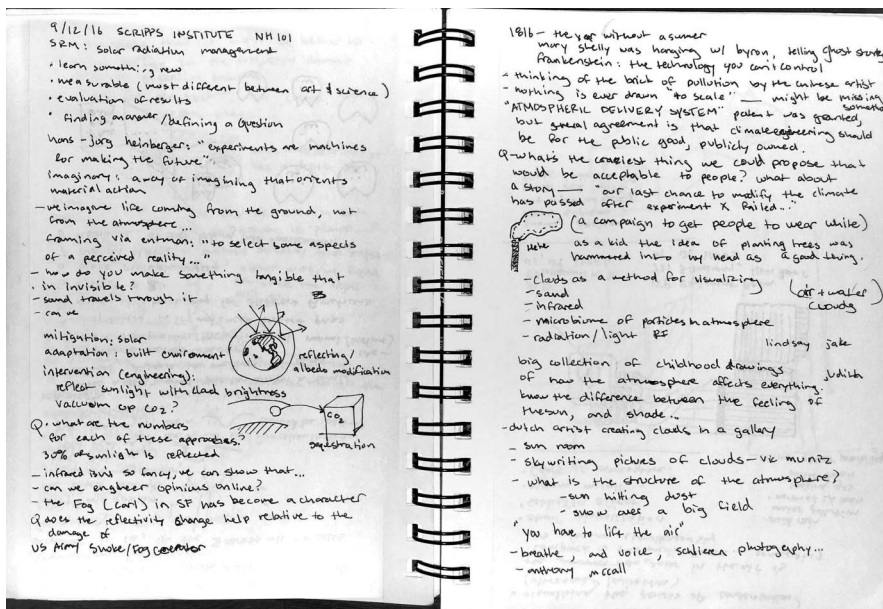 9/12/16 SCRIPPS INSTITUTE NH101
SRM: solar radiation management
• learn something new
• measurable (most different between art & science)
• evaluation of results
• finding answer/defining a Question
hans-jorg heinberger: "experiments are machines
for making the future".
imaginary: a way of imagining that orients
material action
- we imagine life coming from the ground, not
from the atmosphere...
framing via entman: "to select some aspects
of a perceived reality..."
- how do you make something tangible that
in invisible?
- sand travels through it
- can we
mitigation: solar
adaptation: built environment
intervention (engineering):
reflect sunlight with cloud brightness
vacuum up CO2?
reflecting/
albedo modification
CO2
sequestration
Q. what are the numbers
for each of these approaches?
30% of sunlight is reflected
- infrared isn't so fancy, we can show that...
- can we engineer opinions online?
- the Fog (Carl) in SF has become a character
Q does the reflectivity change help relative to the
damage of
US Army Smoke/Fog Generator
1816 - the year without a summer
mary shelly was hanging w/ byron, telling ghost stories
frankenstein: the technology you can't control
- thinking of the brick of pollution by the chinese artist
- nothing is ever drawn "to scale" — might be missing
"ATMOSPHERIC DELIVERY SYSTEM" patent was granted,
but general agreement is that climate engineering should
be for the public good, publicly owned.
Q - what's the craziest thing we could propose that
would be acceptable to people? what about
a story — "our last chance to modify the climate
has passed after experiment X failed..."
(a campaign to get people to wear white)
as a kid the idea of planting trees was
hammered into my head as a good thing.
- clouds as a method for visualizing
(air + water)
clouds
- sand
- infrared
- microbiome of particles in atmosphere
- radiation/light RF
lindsay jake
judith
big collection of childhood drawings
of how the atmosphere affects everything.
know the difference between the feeling of
the sun, and shade...
- dutch artist creating clouds in a gallery
- sun room
- skywriting pictures of clouds - vic muniz
- what is the structure of the atmosphere?
- sun hitting dust
- snow over a big field
"you have to lift the air"
- breathe, and voice, schlieren photography...
- anthony mccall